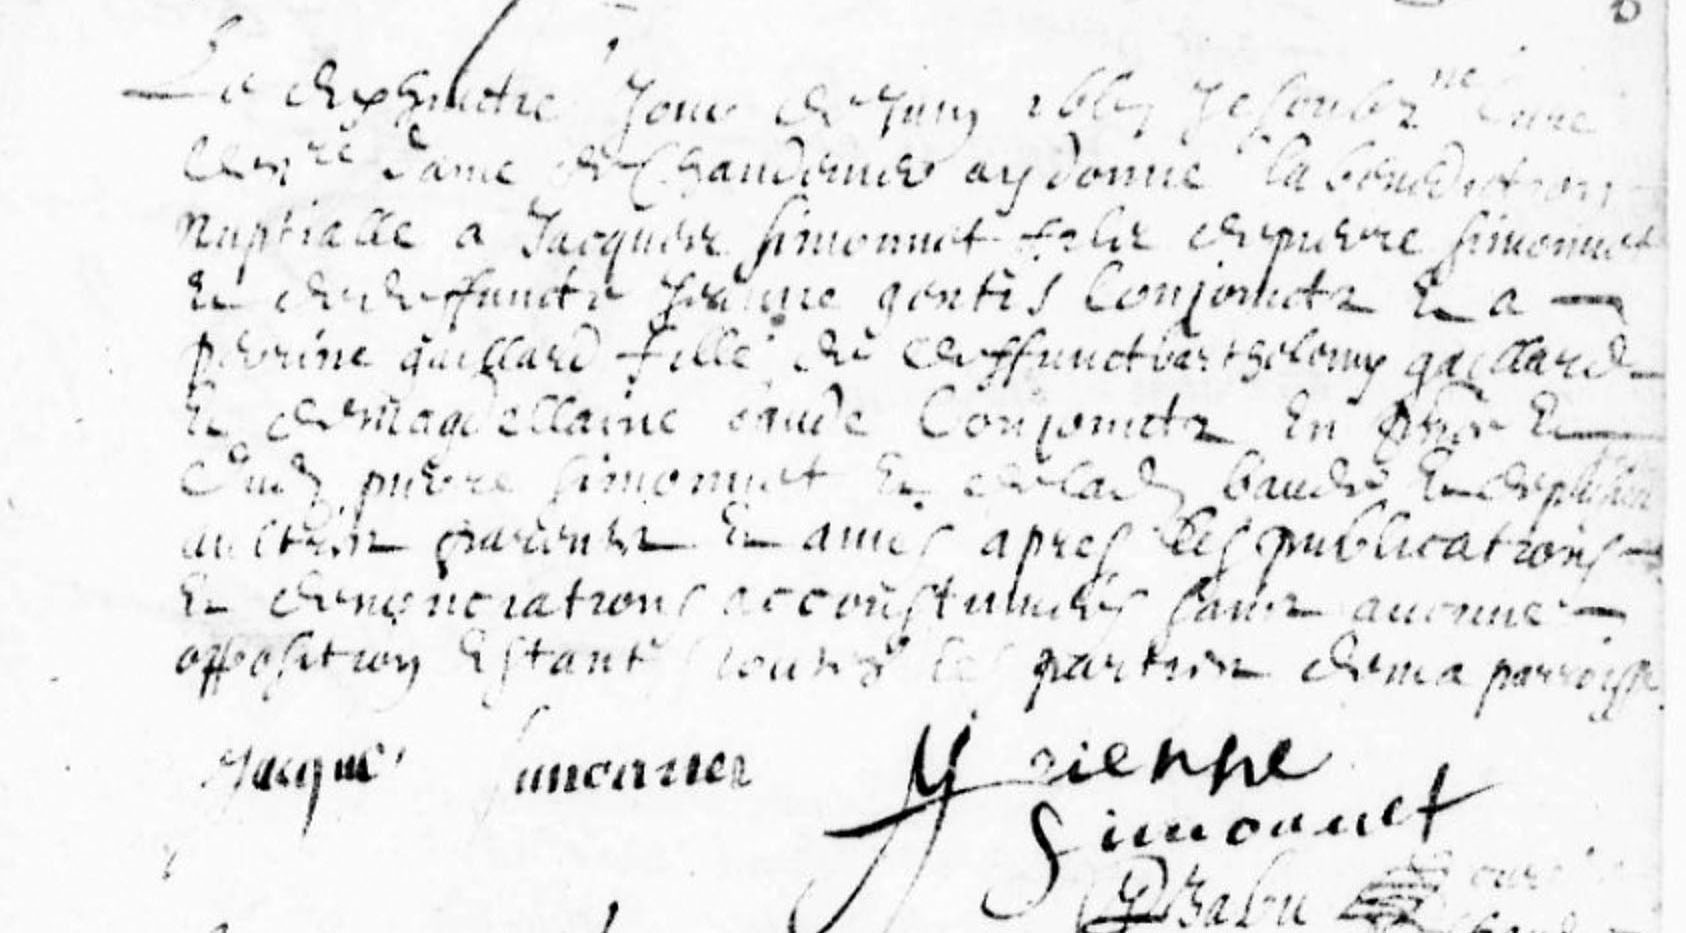 Le dixhuictie Jour de Juin 166 Je soubz ne Curé
de nre dame de Chaudenier ay donné la benediction
Nuptialle a Jacques simonnet filz de pierre simonnet
Et de deffuncte Jeanne gentis Conjoinctz Et a
perrine gaillard fille de deffunct bartholomy gaillard
Et de Magdellaine baude Conjoinctz En pnce
dud pierre simonnet Et de baude Et de plusieurs
aultres parents Et amis apres les publications
Et denonciations accoustumées sans aucune
opposition Estant toutes les parties de ma parroisse
Jacque simonnet
pierre
Simonnet
Babu curé